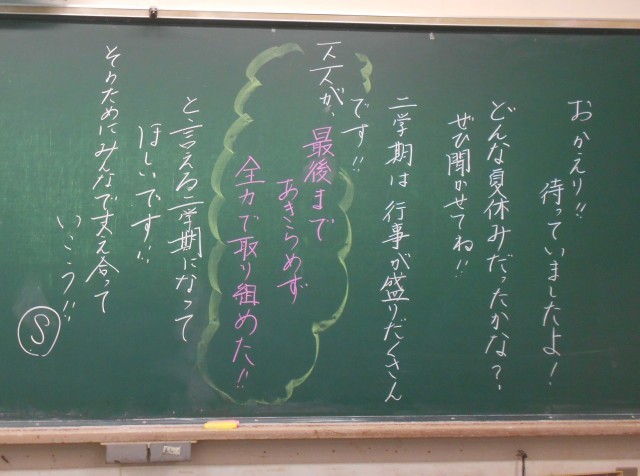 おかえり!!
待っていましたよ!
どんな夏休みだったかな?
ぜひ聞かせてね!!
二学期は行事が盛りだくさん
です!!
一人一人が、
最後まで
あきらめず
全力で取り組めた!!
と、言える二学期になって
ほしいです!!
そのためにみんなで支え合って
いこう!!
S